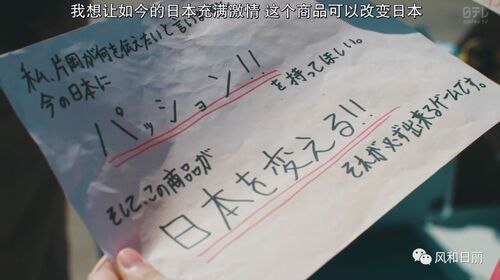 我想让如今的日本充满激情 这个商品可以改变日本
日テレ
私、片岡が何を伝えたいて言いた
今の日本に
パッション!!
を持ってほしい。
そして、この商品が
日本を変える!!
それが必ず出来るゲームです。
风和日丽